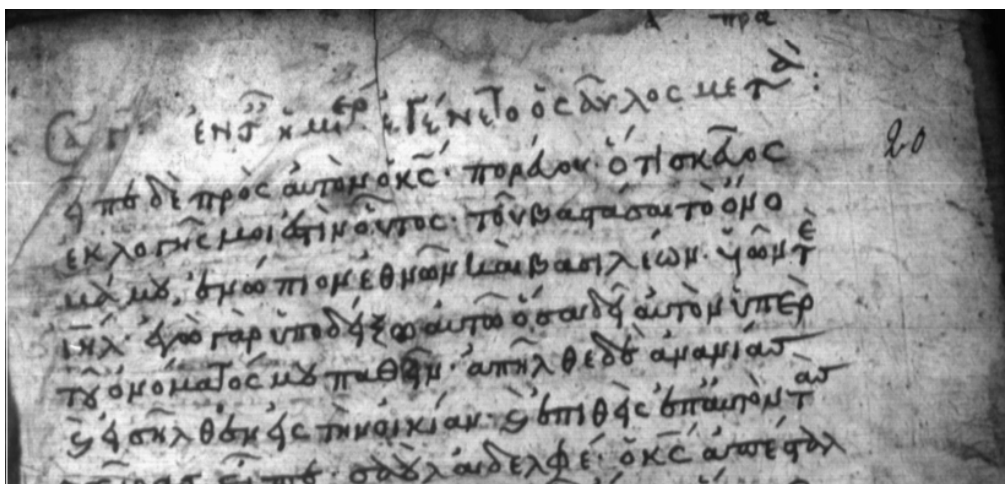 πρα
ἐν τ ἡμερ ἐγένετο ὁ σαῦλος μετὰ:
20
εἶπε δὲ πρὸς αὐτὸν ὁ κ̅ς̅· πορεύου· ὅτι σκεῦος
ἐκλογῆς μοι ἐστὶν οὗτος· τοῦ βαστάσαι τὸ ὄνο
μά μου, ἐνώπιον ἐθνῶν καὶ βασιλέων· υἱῶν τὲ
ι̅η̅λ̅· ἐγὼ γὰρ ὑποδείξω αὐτῶ ὅσα δεῖ αὐτὸν ὑπὲρ
τοῦ ὀνόματός μου παθεῖν· ἀπῆλθε δὲ ἀνανίας
ϗ εἰσῆλθεν εἰς τὴν οἰκίαν· ϗ ἐπιθεὶς ἐπ αὐτὸν τὰς
χεῖρας εἶπε· σαοὺλ ἀδελφέ· ὁ κ̅ς̅ ἀπέσταλ